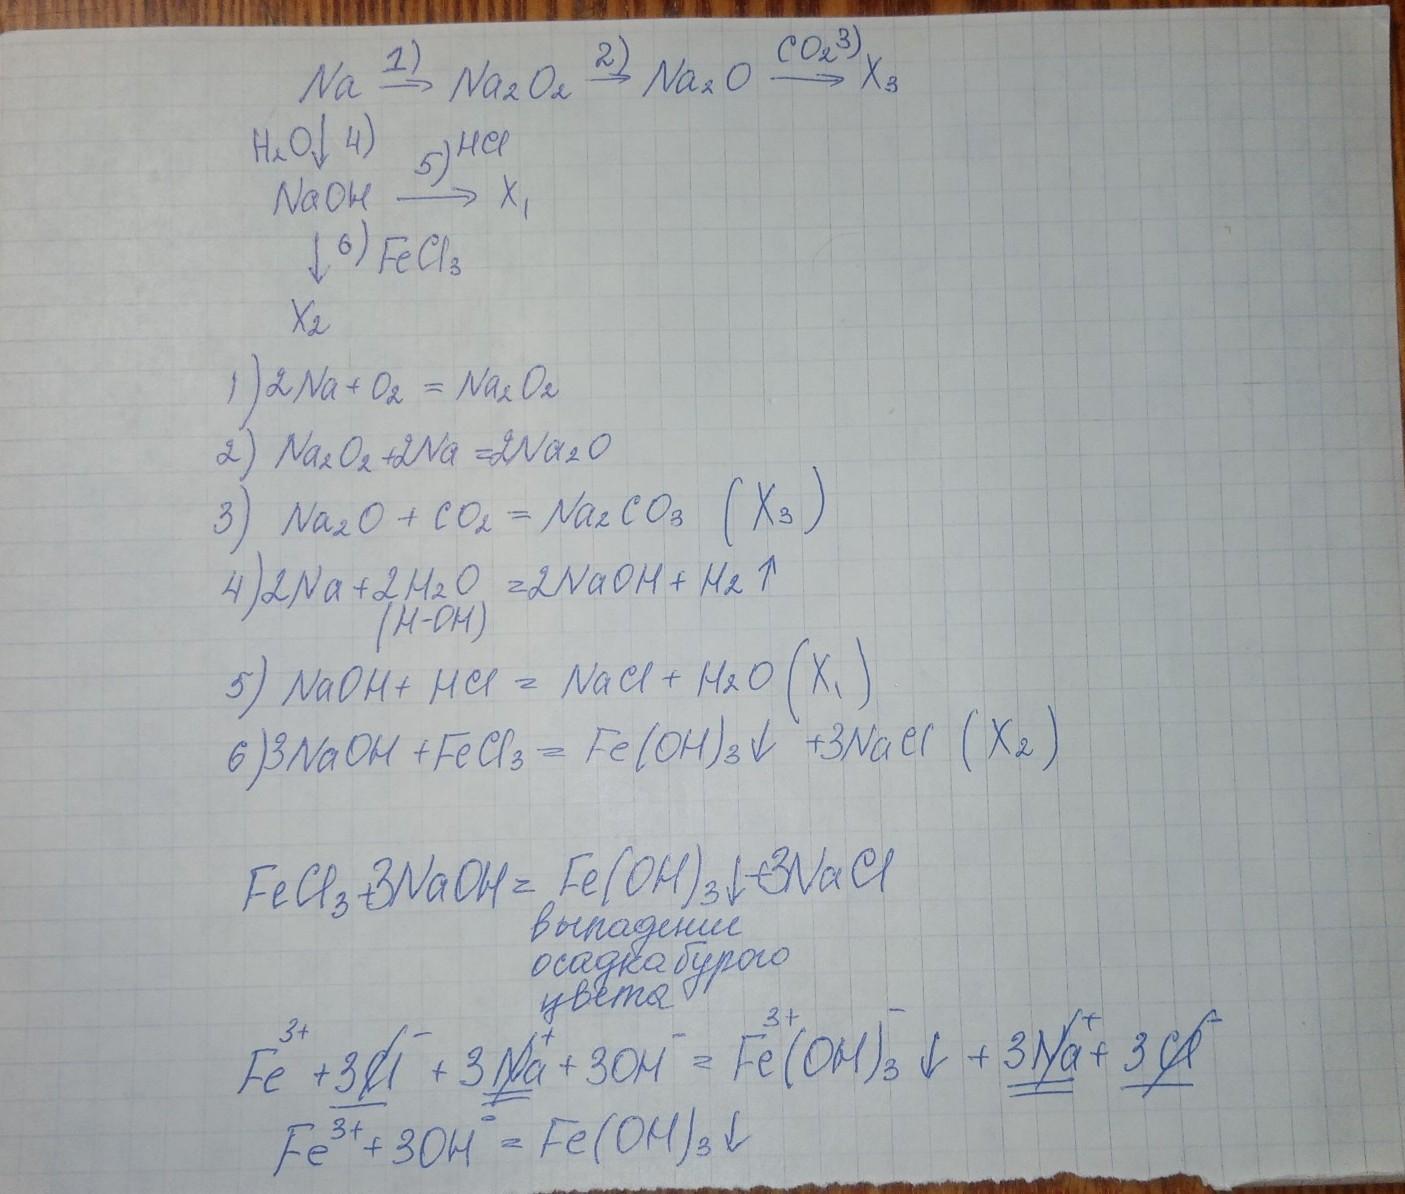 Na 1)→ Na₂O₂ 2)→ Na₂O CO₂ 3)→ X₃
H₂O↓ 4)
NaOH 5) HCl→ X₁
↓ 6) FeCl₃
X₂
1) 2Na + O₂ = Na₂O₂
2) Na₂O₂ + 2Na = 2Na₂O
3) Na₂O + CO₂ = Na₂CO₃ (X₃)
4) 2Na + 2H₂O = 2NaOH + H₂↑
(H-OH)
5) NaOH + HCl = NaCl + H₂O (X₁)
6) 3NaOH + FeCl₃ = Fe(OH)₃↓ + 3NaCl (X₂)
FeCl₃ + 3NaOH = Fe(OH)₃↓ + 3NaCl
выпадение
осадка бурого
цвета
Fe³⁺ + 3Cl⁻ + 3Na⁺ + 3OH⁻ = Fe³⁺(OH)₃⁻↓ + 3Na⁺ + 3Cl⁻
Fe³⁺ + 3OH⁻ = Fe(OH)₃↓